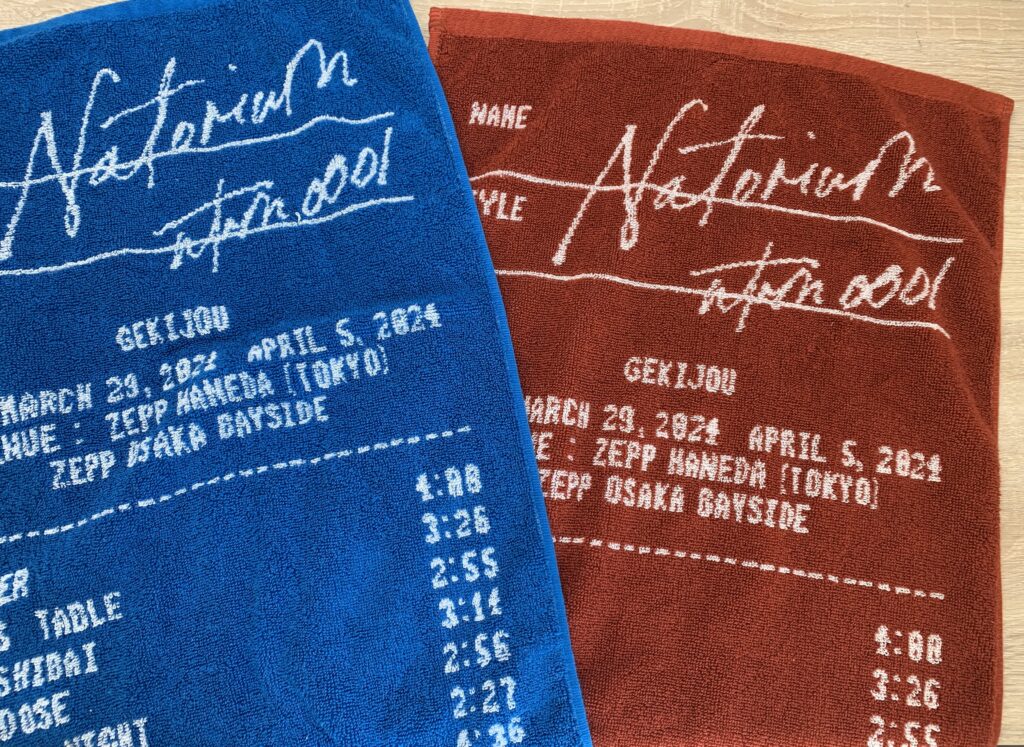 Natorium
ntrm.0001
GEKIJOU
MARCH 29, 2024 APRIL 5, 2024
NUE : ZEPP HANEDA [TOKYO]
ZEPP OSAKA BAYSIDE
ER 4:00
S TABLE 3:26
SHIBAI 2:55
DOSE 3:14
NIGHT 2:56
2:27
4:36
NAME Natorium
YLE ntrm.0001
GEKIJOU
MARCH 29, 2024 APRIL 5, 2024
E : ZEPP HANEDA [TOKYO]
ZEPP OSAKA BAYSIDE
4:00
3:26
2:55